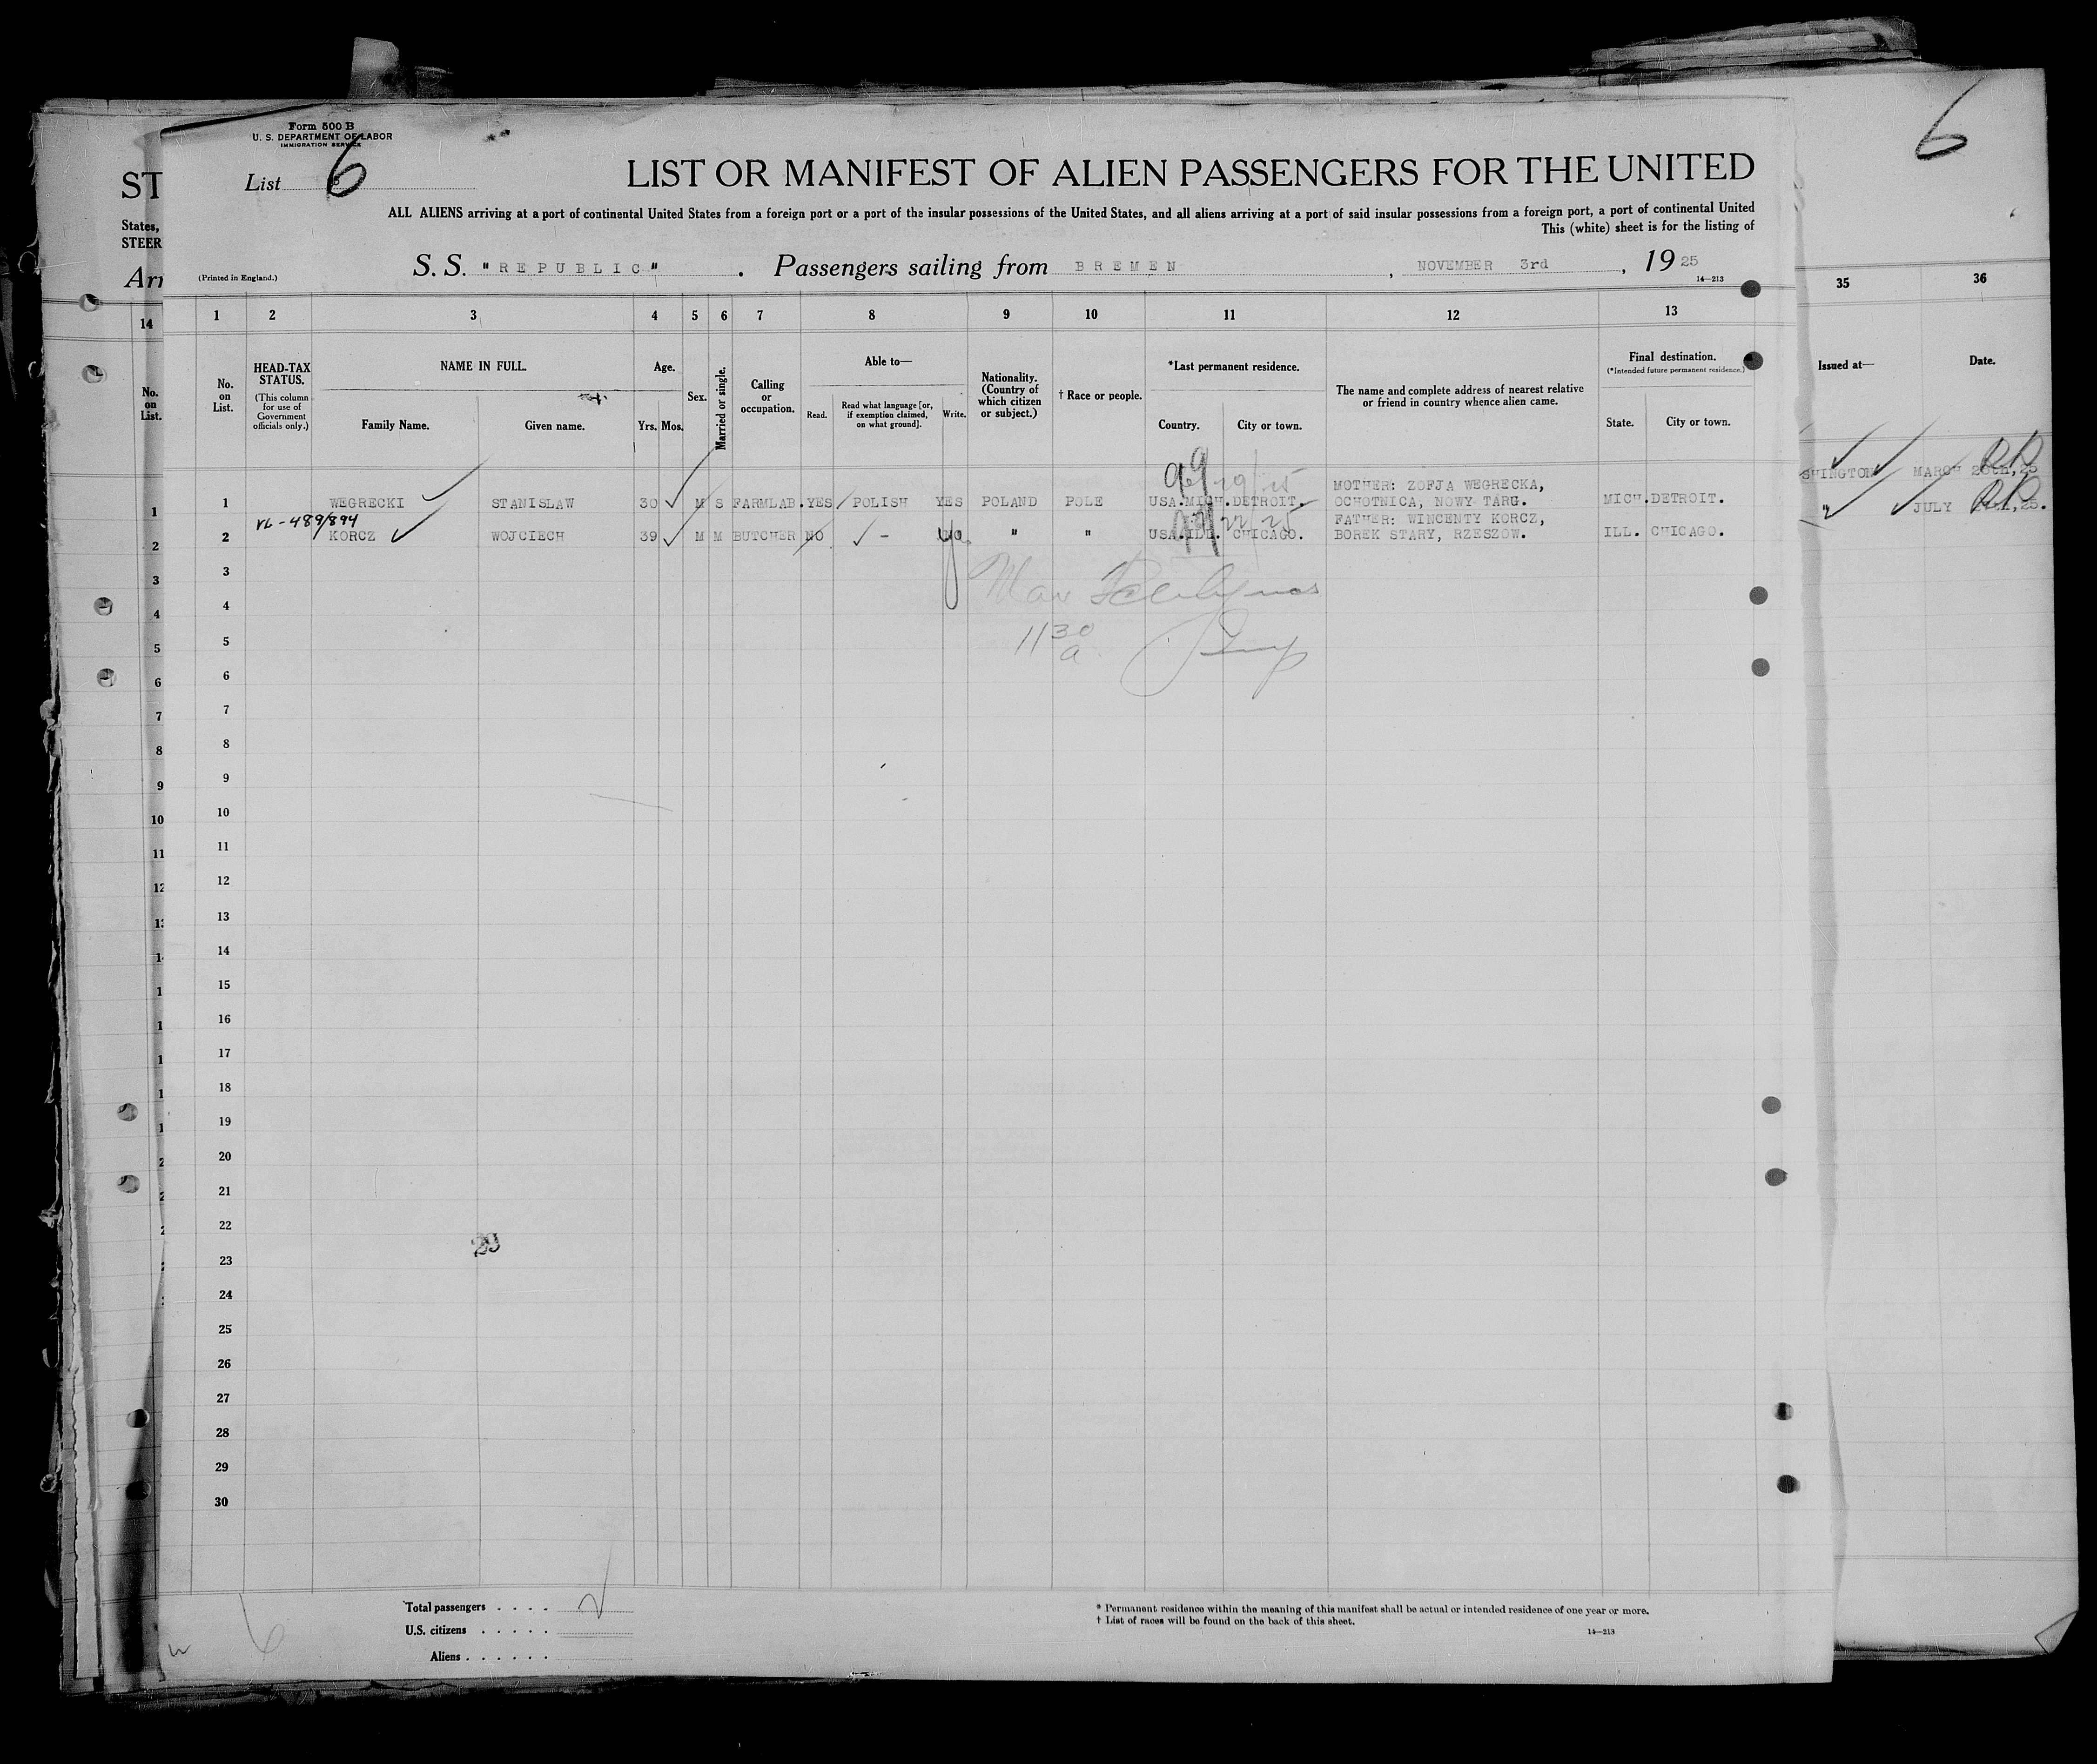 Form 500 B
U. S. DEPARTMENT OF LABOR
IMMIGRATION SERVICE
List 6
LIST OR MANIFEST OF ALIEN PASSENGERS FOR THE UNITED
ALL ALIENS arriving at a port of continental United States from a foreign port or a port of the insular possessions of the United States, and all aliens arriving at a port of said insular possessions from a foreign port, a port of continental United
This (white) sheet is for the listing of
(Printed in England.)
S. S. "REPUBLIC". Passengers sailing from BREMEN, NOVEMBER 3rd, 1925
14—213
1 2 3 4 5 6 7 8 9 10 11 12 13
No. on List.
HEAD-TAX STATUS.
(This column for use of Government officials only.)
NAME IN FULL.
Family Name. Given name.
Age.
Yrs. Mos.
Sex.
Married or single.
Calling or occupation.
Able to—
Read. Read what language [or, if exemption claimed, on what ground]. Write.
Nationality. (Country of which citizen or subject.)
† Race or people.
*Last permanent residence.
Country. City or town.
The name and complete address of nearest relative or friend in country whence alien came.
Final destination.
(*Intended future permanent residence.)
State. City or town.
MOTHER: ZOFJA WEGRECKA,
1 WEGRECKI STANISLAW 30 M S FARMLAB. YES POLISH YES POLAND POLE USA.MICH.DETROIT. OCHOTNICA, NOWY TARU. MICH.DETROIT.
489/894
FATHER: WINCENTY KORCZ,
2 KORCZ WOJCIECH 39 M M BUTCHER NO - " " USA.ILL. CHICAGO. BOREK STARY, RZESZOW. ILL. CHICAGO.
3
4
1130 a
5
6
7
8
9
10
11
12
13
14
15
16
17
18
19
20
21
22
23
24
25
26
27
28
29
30
Total passengers . . . .
U.S. citizens . . . . .
Aliens . . . . . .
* Permanent residence within the meaning of this manifest shall be actual or intended residence of one year or more.
† List of races will be found on the back of this sheet.
14—213
6
ST
States,
STEER
Arr
14
No. on List.
1
2
3
4
5
6
7
8
9
10
11
12
6
35 36
Issued at— Date.
SHINGTON MARCH
" JULY ,25.